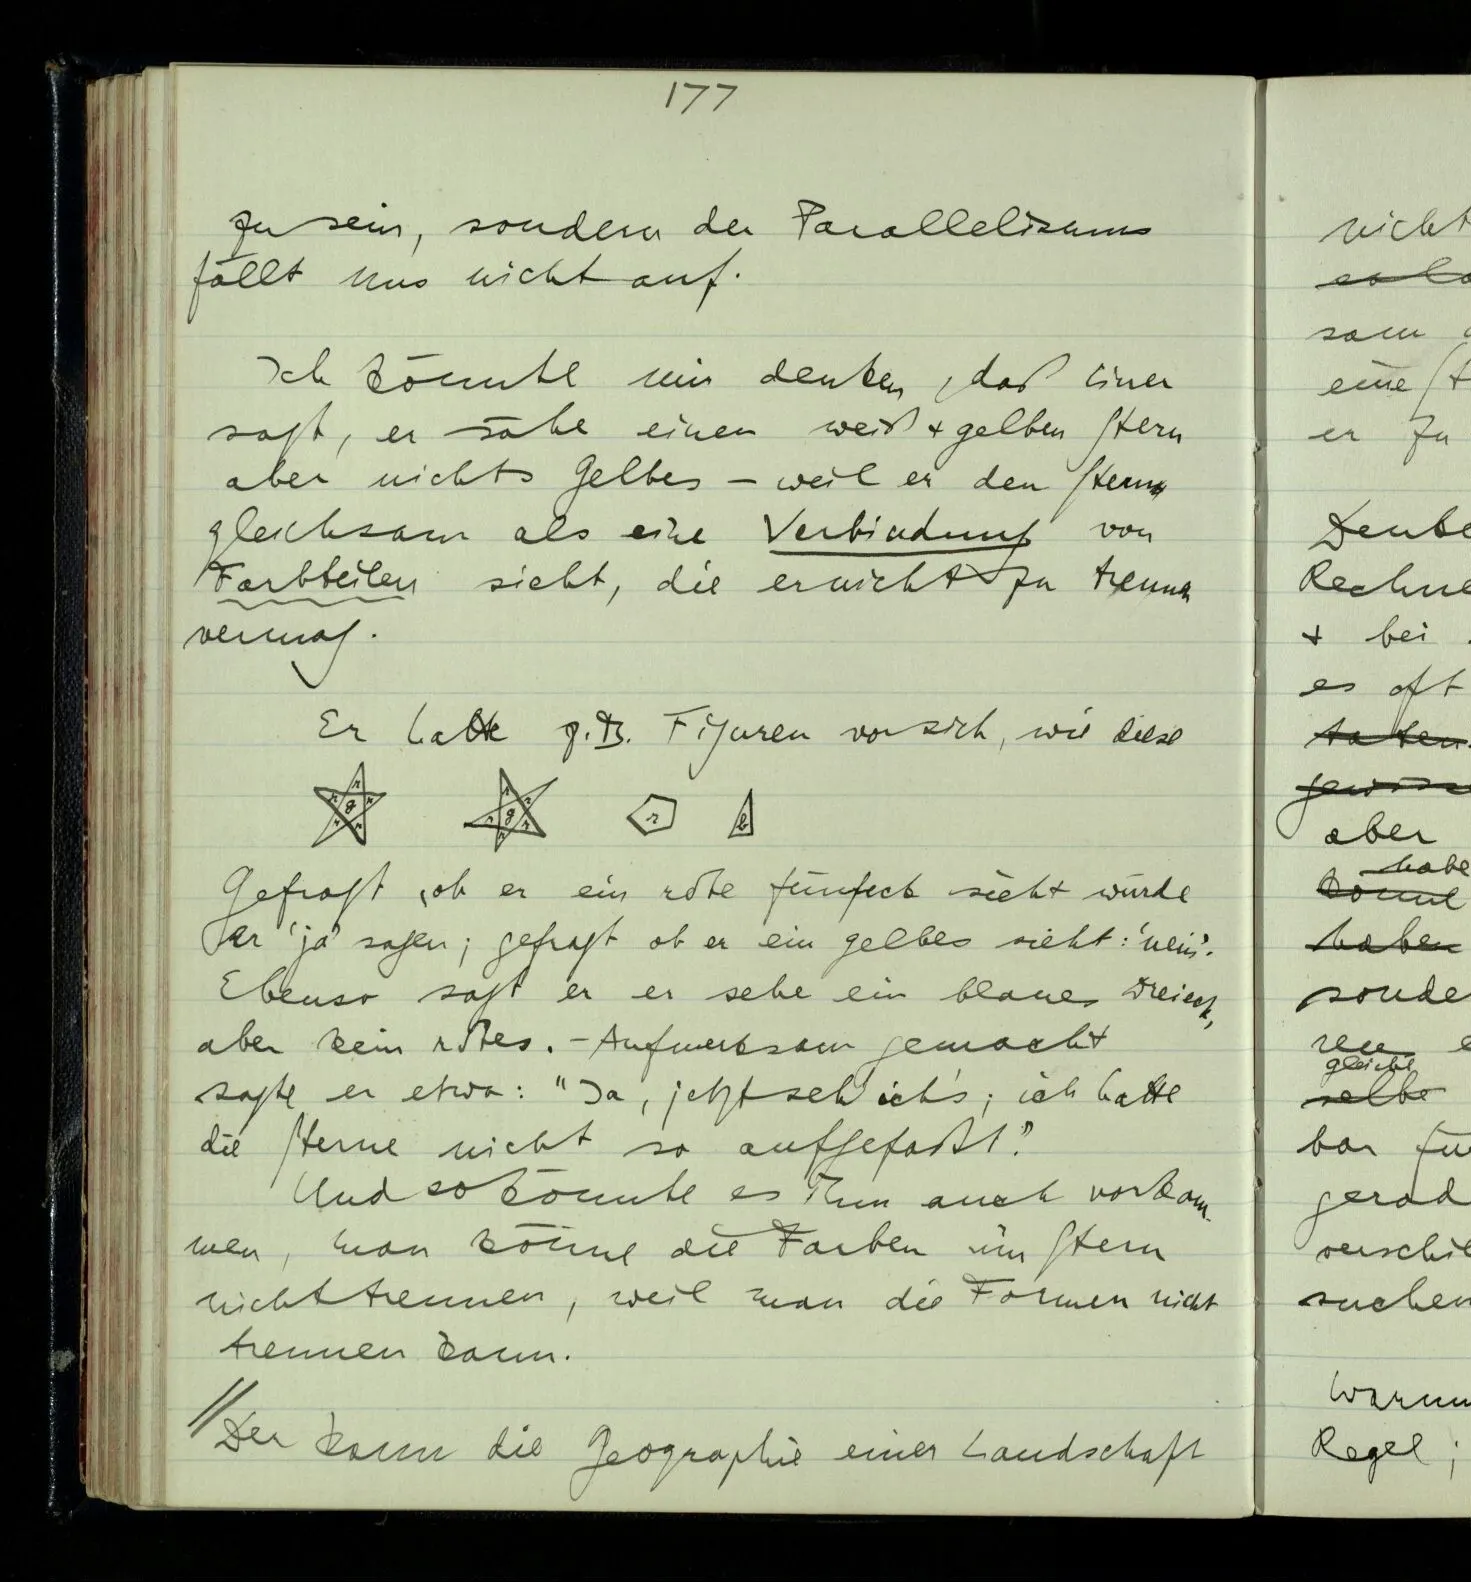 177
zu sein, sondern der Parallelismus
fällt uns nicht auf.
Ich könnte mir denken, daß Einer
sagt, er sähe einen weiß & gelben Stern
aber nichts Gelbes – weil er den Stern
gleichsam als eine Verbindung von
Farbteilen sieht, die er nicht zu trennen
vermag.
Er hatte z.B. Figuren vor sich, wie diese
r r r r r g
r r r r r g
r
b
Gefragt, ob er ein rote Fünfeck sieht würde
er 'ja' sagen; gefragt ob er ein gelbes sieht: 'nein'.
Ebenso sagt er er sehe ein blaues Dreieck,
aber kein rotes. – Aufmerksam gemacht
sagte er etwa: "Ja, jetzt seh' ich's; ich hatte
die Sterne nicht so aufgefaßt."
Und so könnte es Ihm auch vorkom-
men, man könne die Farben im Stern
nicht trennen, weil man die Formen nicht
trennen kann.
// Der kann die Geographie einer Landschaft
nicht
sam
eine
er zu
Rechne
& bei
es oft
taten
aber
habe
könne
haben
sonde
ren
gleiche
selbe
bar
gerad
verschie
suchen
Warum
Regel;